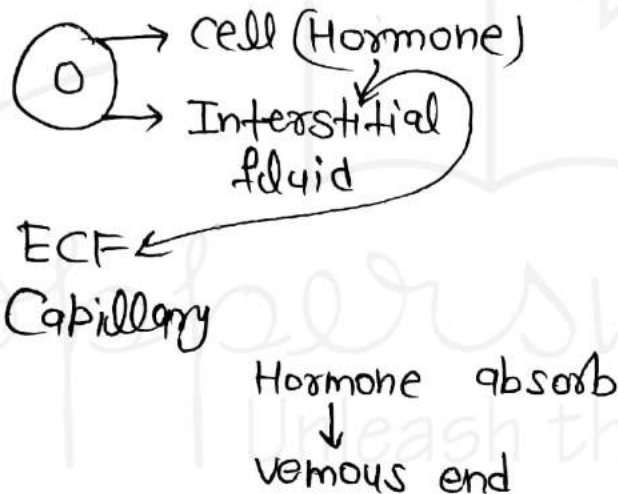 cell (Hormone)
Interstitial
fluid
ECF
Capillary
Hormone absorb
venous end